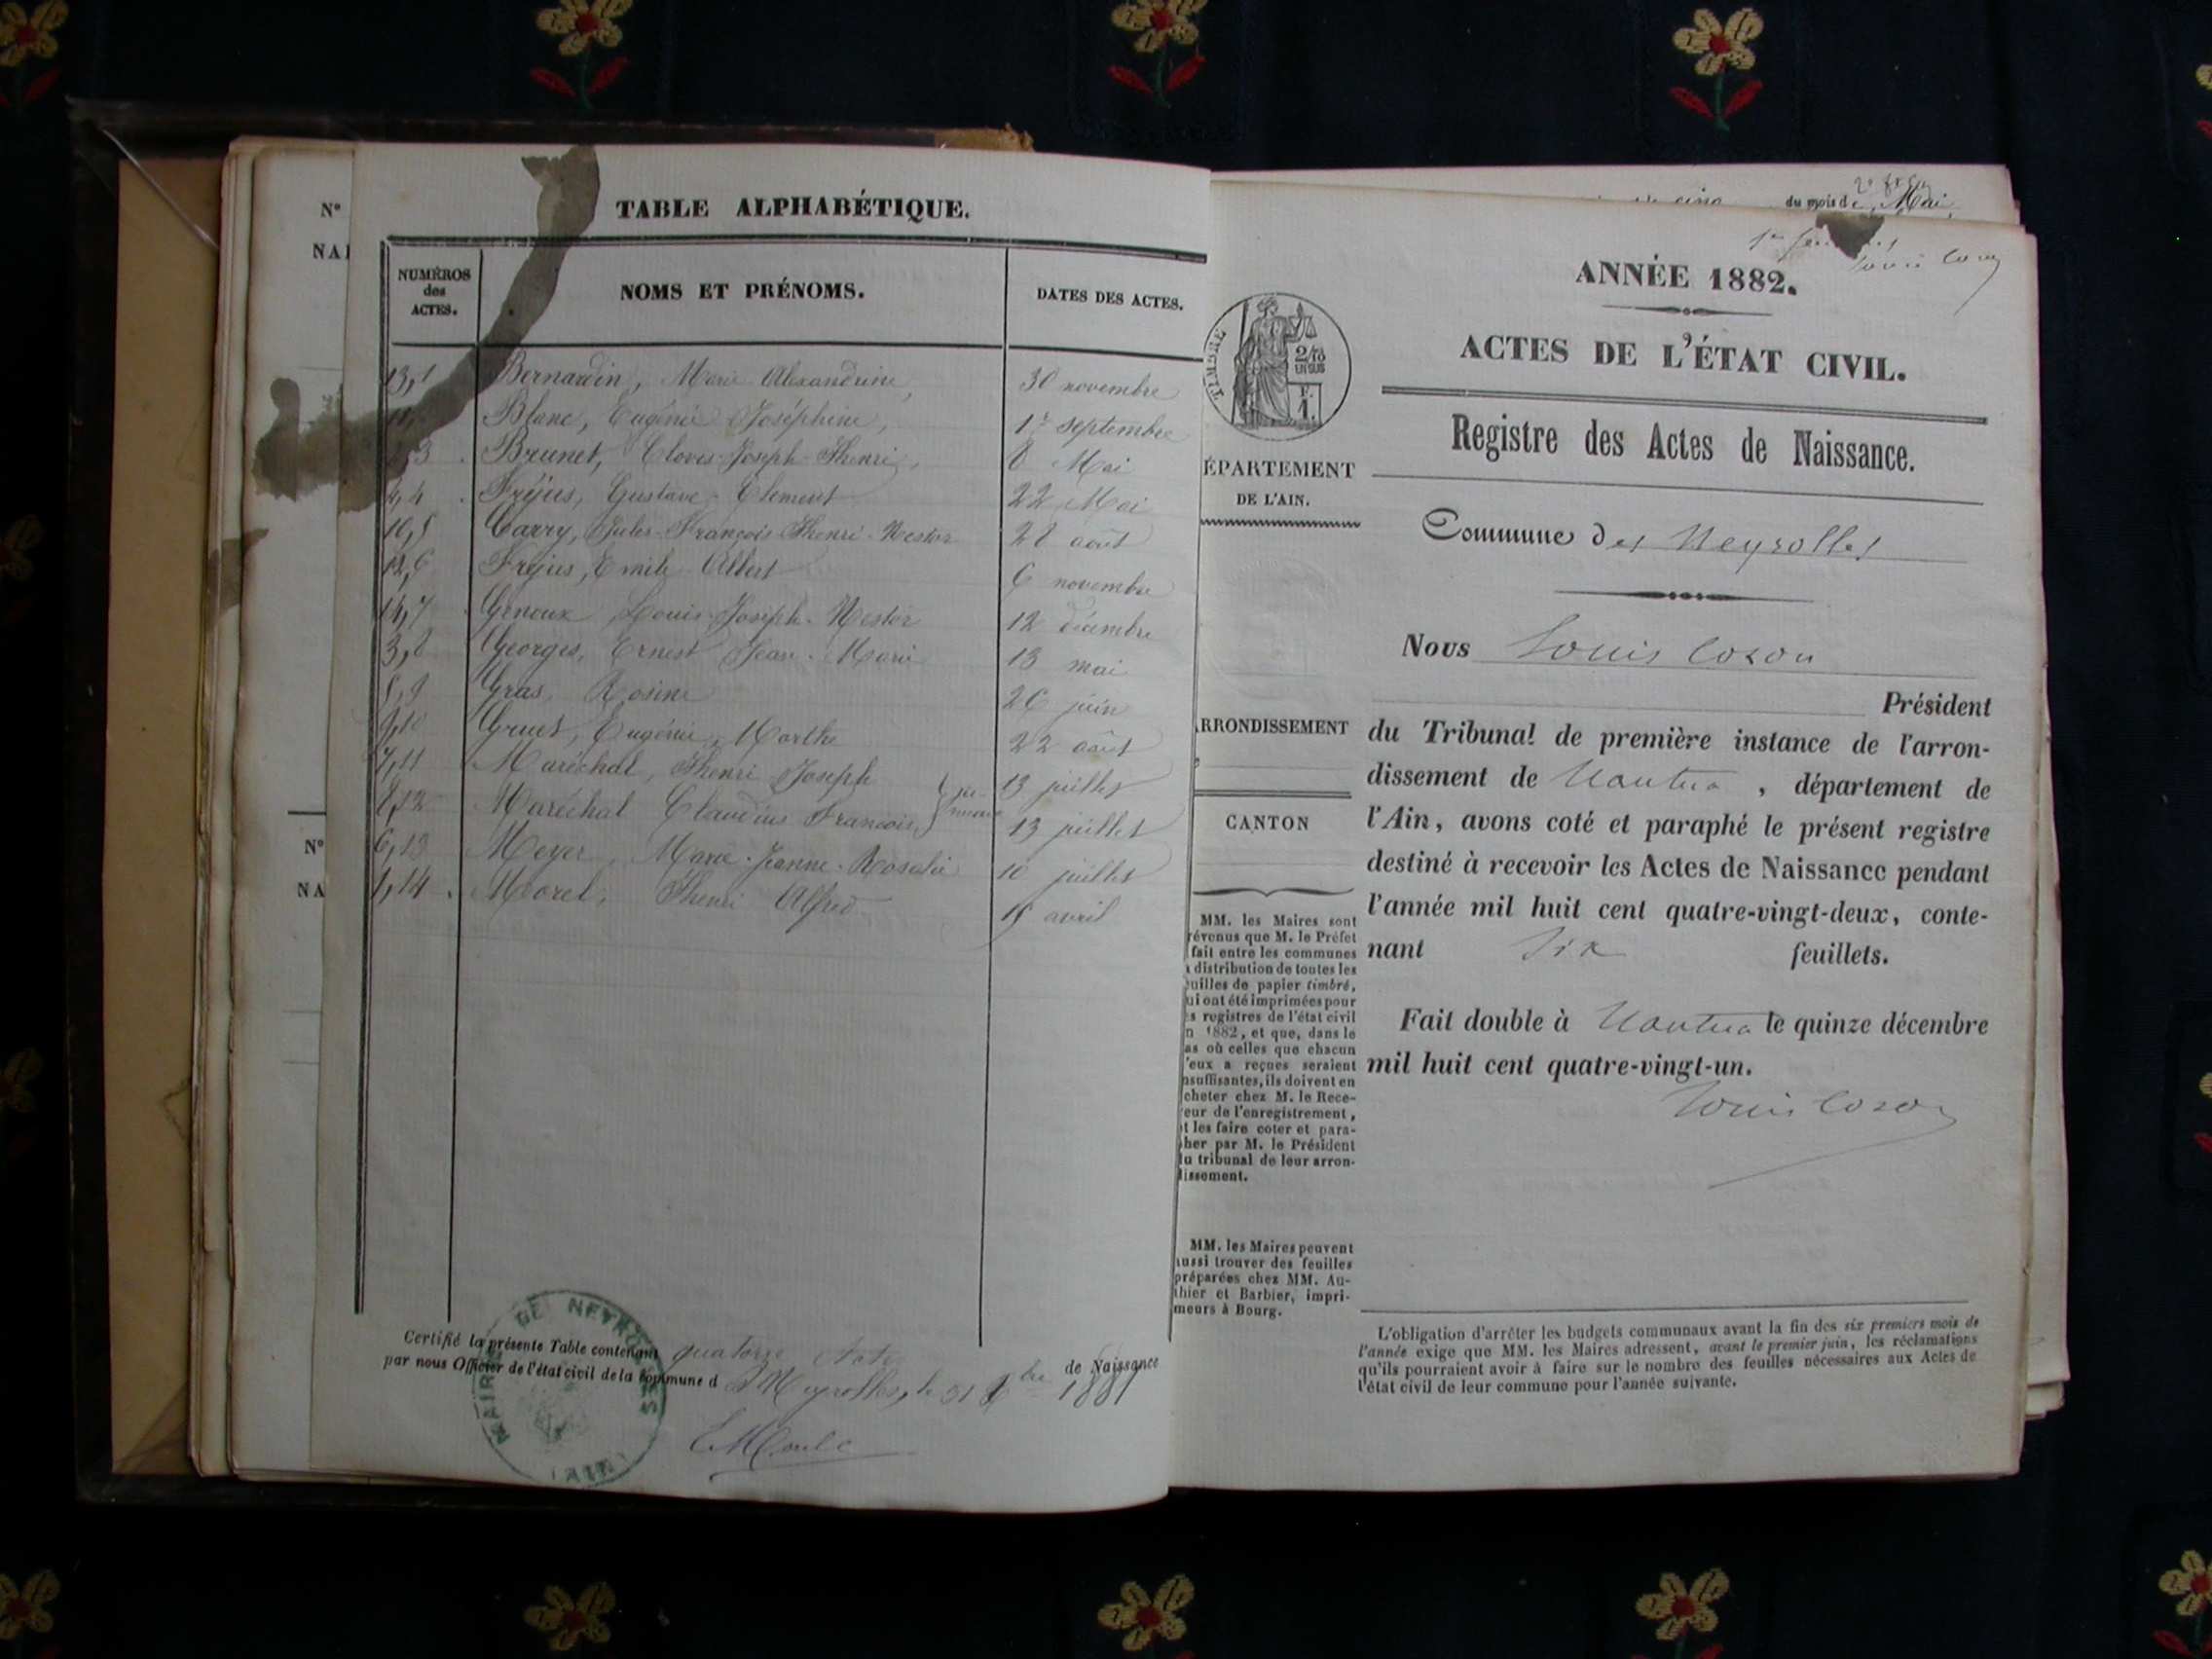 N°
NA
N°
NA
TABLE ALPHABÉTIQUE.
NUMÉROS des ACTES.
NOMS ET PRÉNOMS.
DATES DES ACTES.
13,1 Bernardin, Marie Alexandrine, 30 novembre
Blanc, Eugénie Joséphine, 1er septembre
3 Brunet, Clovis-Joseph-Henri, 8 Mai
4,4 Fréjus, Gustave-Clement 22 Mai
10,5 Carry, Jules-François Henri-Nestor 28 août
12,6 Fréjus, Emile Albert 6 novembre
14,7 Genoux Louis-Joseph-Nestor 12 décembre
3,8 Georges, Ernest Jean-Marie 13 mai
5,9 Gras, Rosine 26 juin
9,10 Gruet, Eugénie, Marthe 22 août
7,11 Maréchal, Henri Joseph 13 juillet
8,12 Maréchal Claudius François, 13 juillet
6,13 Meyer, Marie-Jeanne-Rosalie 10 juillet
1,14 Morel, Henri Alfred 15 avril
Certifié la présente Table contenant quatorze actes de Naissance
par nous Officier de l'état civil de la commune d Neyrolles, le 31 Xbre 1881
MAIRIE DE NEYROLLES (AIN)
du mois de Mai
2e
1er
Louis Cozon
ANNÉE 1882.
ACTES DE L'ÉTAT CIVIL.
Registre des Actes de Naissance.
TIMBRE
2/10
EN SUS
F.
1.
ÉPARTEMENT
DE L'AIN.
Commune des Neyrolles
Nous Louis Cozon
Président
ARRONDISSEMENT
du Tribunal de première instance de l'arron-
dissement de Nantua, département de
CANTON
l'Ain, avons coté et paraphé le présent registre
destiné à recevoir les Actes de Naissance pendant
l'année mil huit cent quatre-vingt-deux, conte-
nant six feuillets.
Fait double à Nantua le quinze décembre
mil huit cent quatre-vingt-un.
Louis Cozon
MM. les Maires sont
révenus que M. le Préfet
fait entre les communes
a distribution de toutes les
uilles de papier timbré,
ui ont été imprimées pour
es registres de l'état civil
n 1882, et que, dans le
as où celles que chacun
'eux a reçues seraient
nsuffisantes, ils doivent en
cheter chez M. le Rece-
eur de l'enregistrement,
t les faire coter et para-
her par M. le Président
du tribunal de leur arron-
dissement.
MM. les Maires peuvent
aussi trouver des feuilles
préparées chez MM. Au-
thier et Barbier, impri-
meurs à Bourg.
L'obligation d'arrêter les budgets communaux avant la fin des six premiers mois de
l'année exige que MM. les Maires adressent, avant le premier juin, les réclamations
qu'ils pourraient avoir à faire sur le nombre des feuilles nécessaires aux Actes de
l'état civil de leur commune pour l'année suivante.